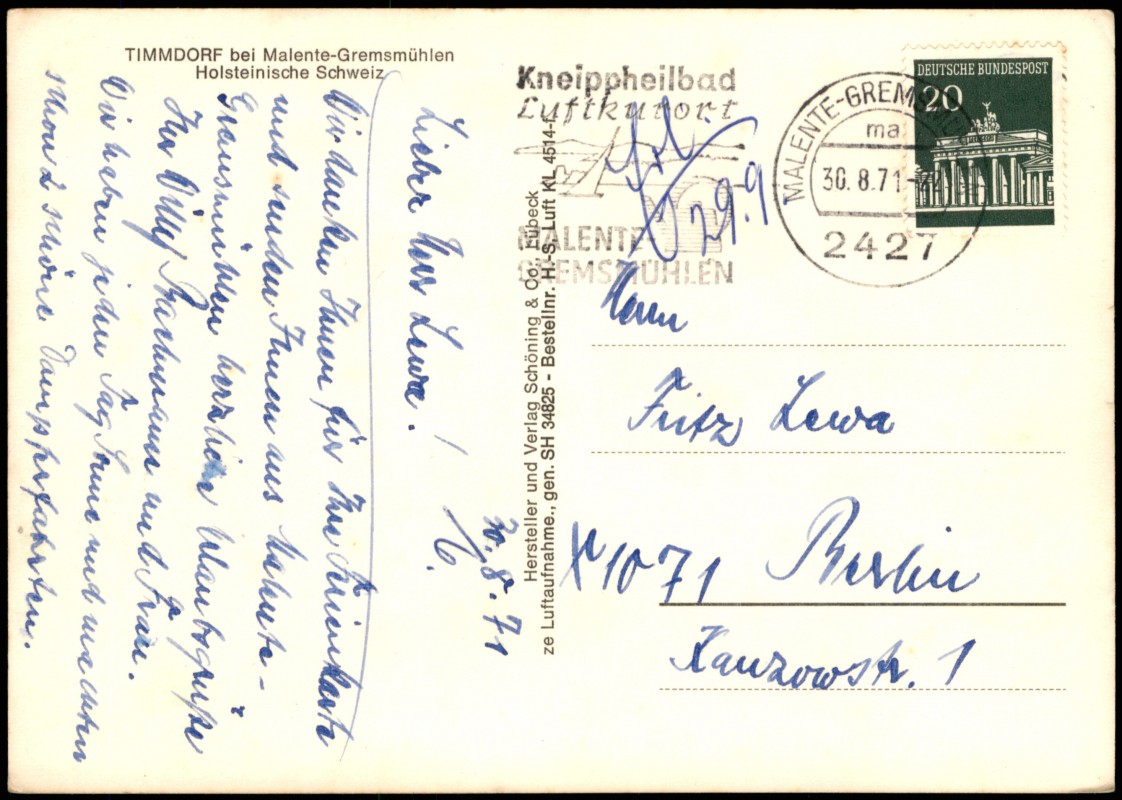 TIMMDORF bei Malente-Gremsmühlen
Holsteinische Schweiz
Kneippheilbad
Luftkurort
MALENTE-
GREMSMÜHLEN
MALENTE-GREMSMÜHLEN
ma
30.8.71
2427
DEUTSCHE BUNDESPOST
20
29.9
M. 30.8.71
Lieber Herr Lewa!
Wir danken Ihnen für Ihre Ferienkarte
und senden Ihnen aus Malente-
Gremsmühlen herzliche Urlaubsgrüße
Ihr Willy Bachmann und Frau.
Wir haben jeden Tag Sonne und machten
schon 2 schöne Dampferfahrten.
Hersteller und Verlag Schöning & Co., Lübeck
ze Luftaufnahme., gen. SH 34825 - Bestellnr. H.-S. Luft KL 4514-f
Herrn
Fritz Lewa
X 1071 Berlin
Kanzowstr. 1